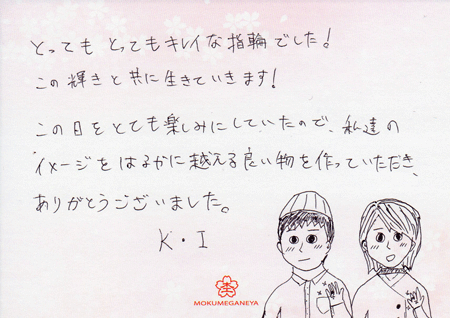 とっても とってもキレイな指輪でした!
この輝きと共に生きていきます!
この日をとても楽しみにしていたので、私達の
イメージをはるかに越える良い物を作っていただき、
ありがとうございました。
K・I
MOKUMEGANEYA